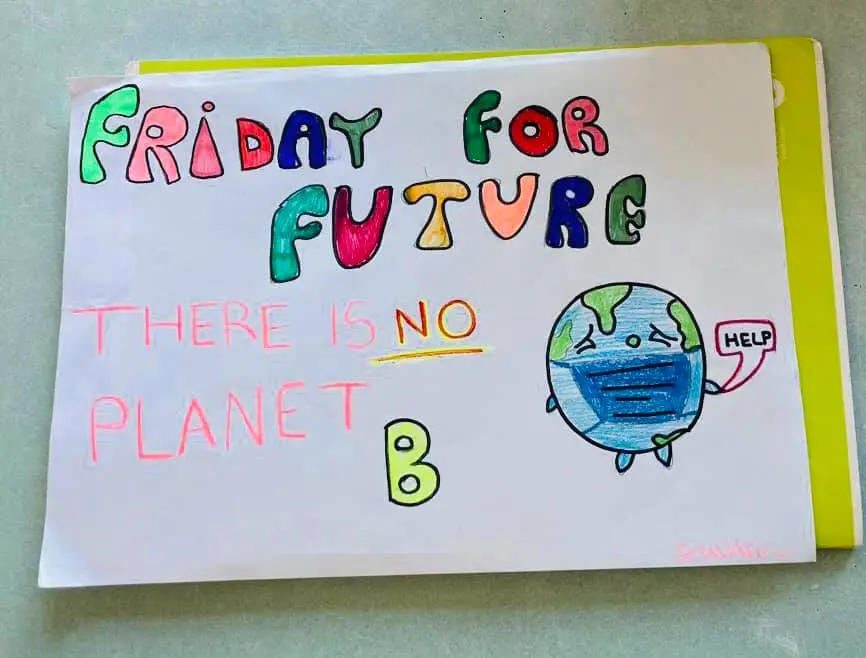 FRiDAY FOR
FUTURE
THERE IS NO
PLANET
B
HELP